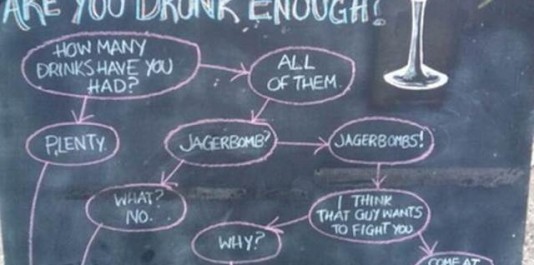 ARE YOU DRUNK ENOUGH?
HOW MANY
DRINKS HAVE YOU
HAD?
ALL
OF THEM.
PLENTY.
JAGERBOMB?
JAGERBOMBS!
WHAT?
NO.
I THINK
THAT GUY WANTS
TO FIGHT YOU
WHY?
COME AT